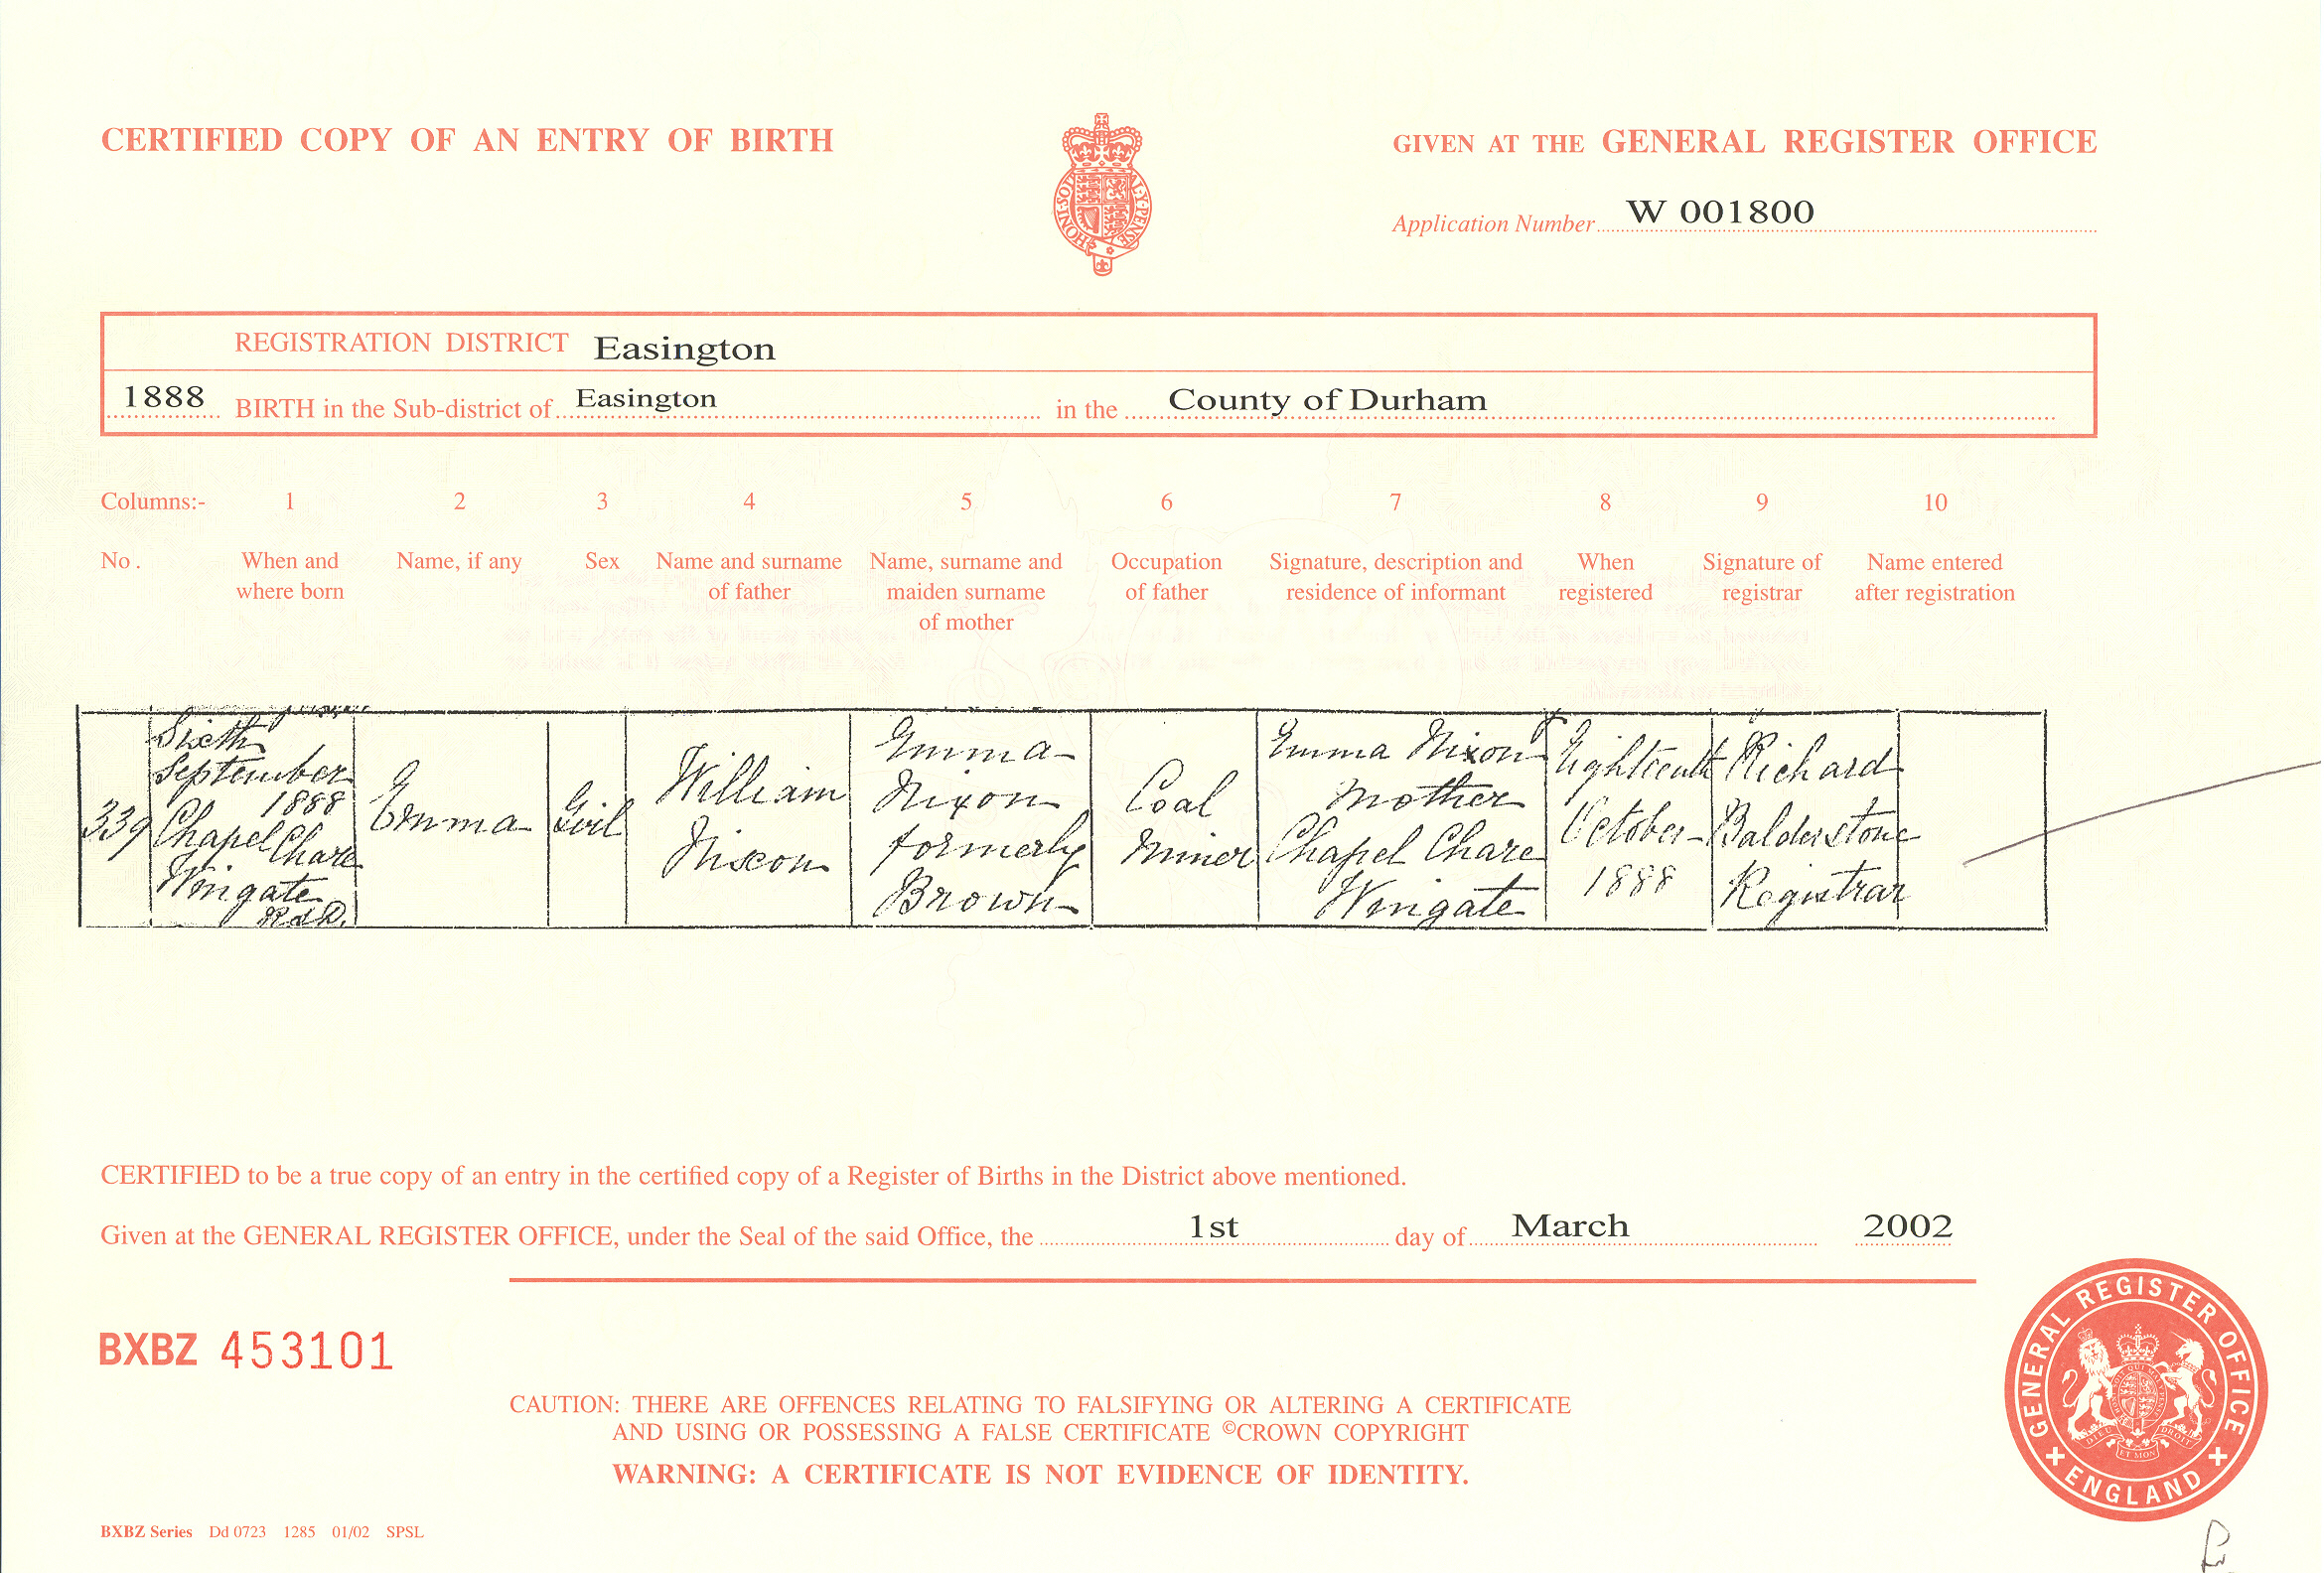 CERTIFIED COPY OF AN ENTRY OF BIRTH
GIVEN AT THE GENERAL REGISTER OFFICE
HONI·SOI AL·Y·PENSE
Application Number W 001800
REGISTRATION DISTRICT Easington
1888 BIRTH in the Sub-district of Easington in the County of Durham
Columns:- 1 2 3 4 5 6 7 8 9 10
No. When and where born
Name, if any
Sex
Name and surname of father
Name, surname and maiden surname of mother
Occupation of father
Signature, description and residence of informant
When registered
Signature of registrar
Name entered after registration
339
Sixth
September
1888
Chapel Chare
Wingate
R.S.D.
Emma
Girl
William
Nixon
Emma
Nixon
formerly
Brown
Coal
Miner
Emma Nixon
Mother
Chapel Chare
Wingate
Eighteenth
October
1888
Richard
Balderstone
Registrar
CERTIFIED to be a true copy of an entry in the certified copy of a Register of Births in the District above mentioned.
Given at the GENERAL REGISTER OFFICE, under the Seal of the said Office, the 1st day of March 2002
BXBZ 453101
CAUTION: THERE ARE OFFENCES RELATING TO FALSIFYING OR ALTERING A CERTIFICATE
AND USING OR POSSESSING A FALSE CERTIFICATE ©CROWN COPYRIGHT
WARNING: A CERTIFICATE IS NOT EVIDENCE OF IDENTITY.
GENERAL REGISTER OFFICE
ENGLAND
DIEU ET MON DROIT
BXBZ Series Dd 0723 1285 01/02 SPSL